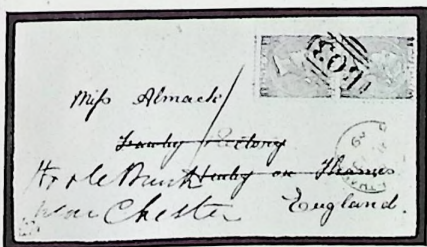 Miss Almack
Fawley Rectory
Hoole Bank Henley on Thames
near Chester England.